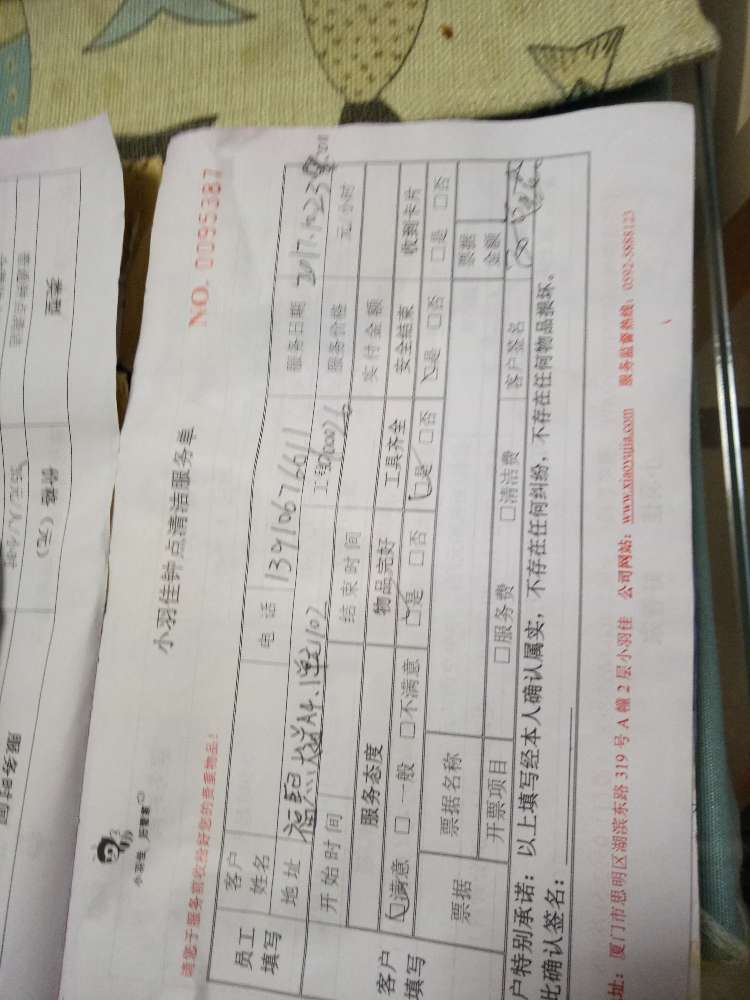 小羽佳
小羽佳 好管家
小羽佳钟点清洁服务单
NO. 0095387
请您于服务前收拾好您的贵重物品!
员工填写
客户姓名
电话 13910676611
服务日期
地址
服务价格 元/小时
开始时间
结束时间
实付金额
客户填写
服务态度
物品完好
工具齐全
安全结束
收到卡片
满意 □ 一般 □不满意
是 □否
是 □否
是 □否
□是 □否
票据
票据名称
票据金额
开票项目
□服务费
□清洁费
客户签名
户特别承诺:以上填写经本人确认属实,不存在任何纠纷,不存在任何物品损坏。
此确认签名:
址:厦门市思明区湖滨东路 319 号 A 幢 2 层小羽佳 公司网站:www.xiaoyujia.com 服务监督热线:0592-5888123
类型
价格(元)
服务时间